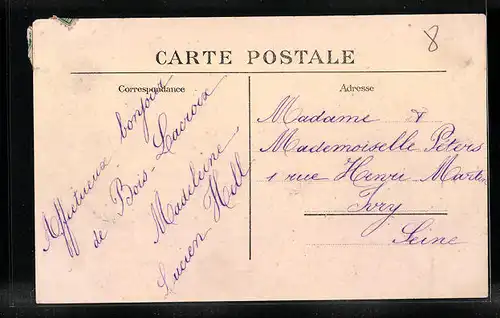 8
CARTE POSTALE
Correspondance
Adresse
Affectueux bonjour
de Bois-Lacroix
Madeleine
Lucien Hell
Madame &
Mademoiselle Peters
1 rue Henri Martin
Ivry
Seine